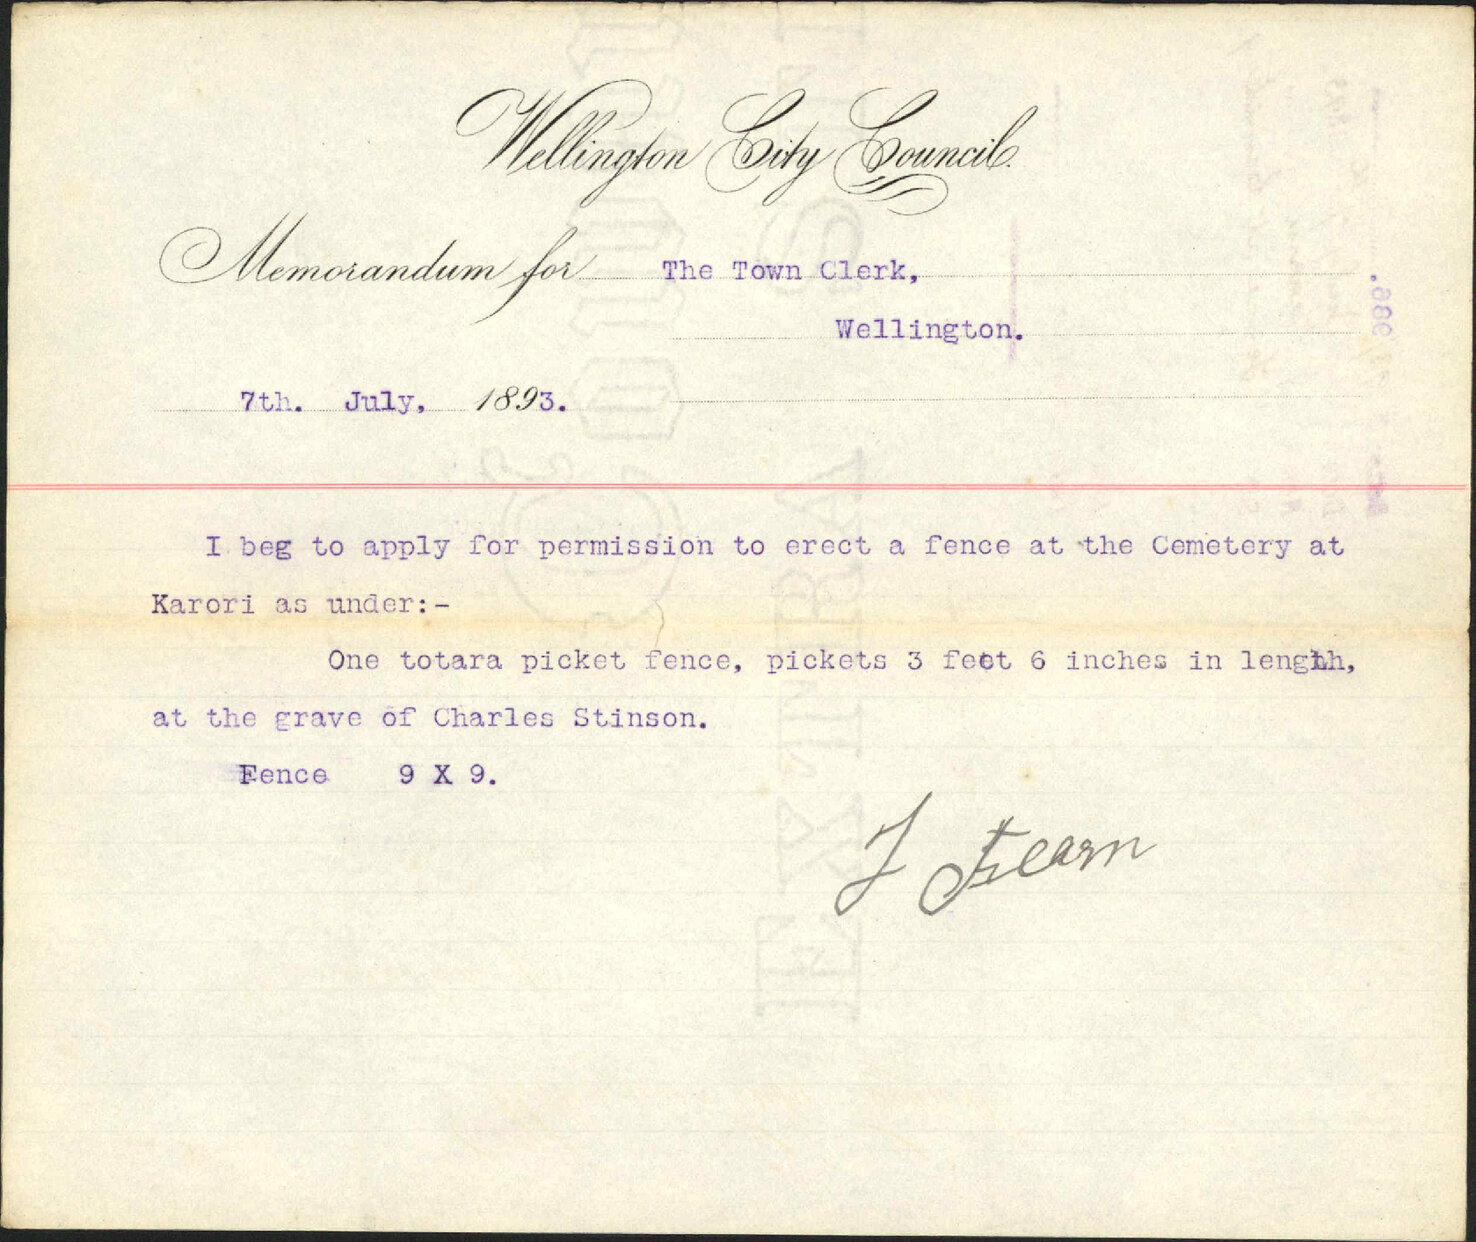 Wellington City Council.
Memorandum for The Town Clerk,
Wellington.
7th. July, 1893.
I beg to apply for permission to erect a fence at the Cemetery at
Karori as under:-
One totara picket fence, pickets 3 feet 6 inches in length,
at the grave of Charles Stinson.
Fence 9 X 9.